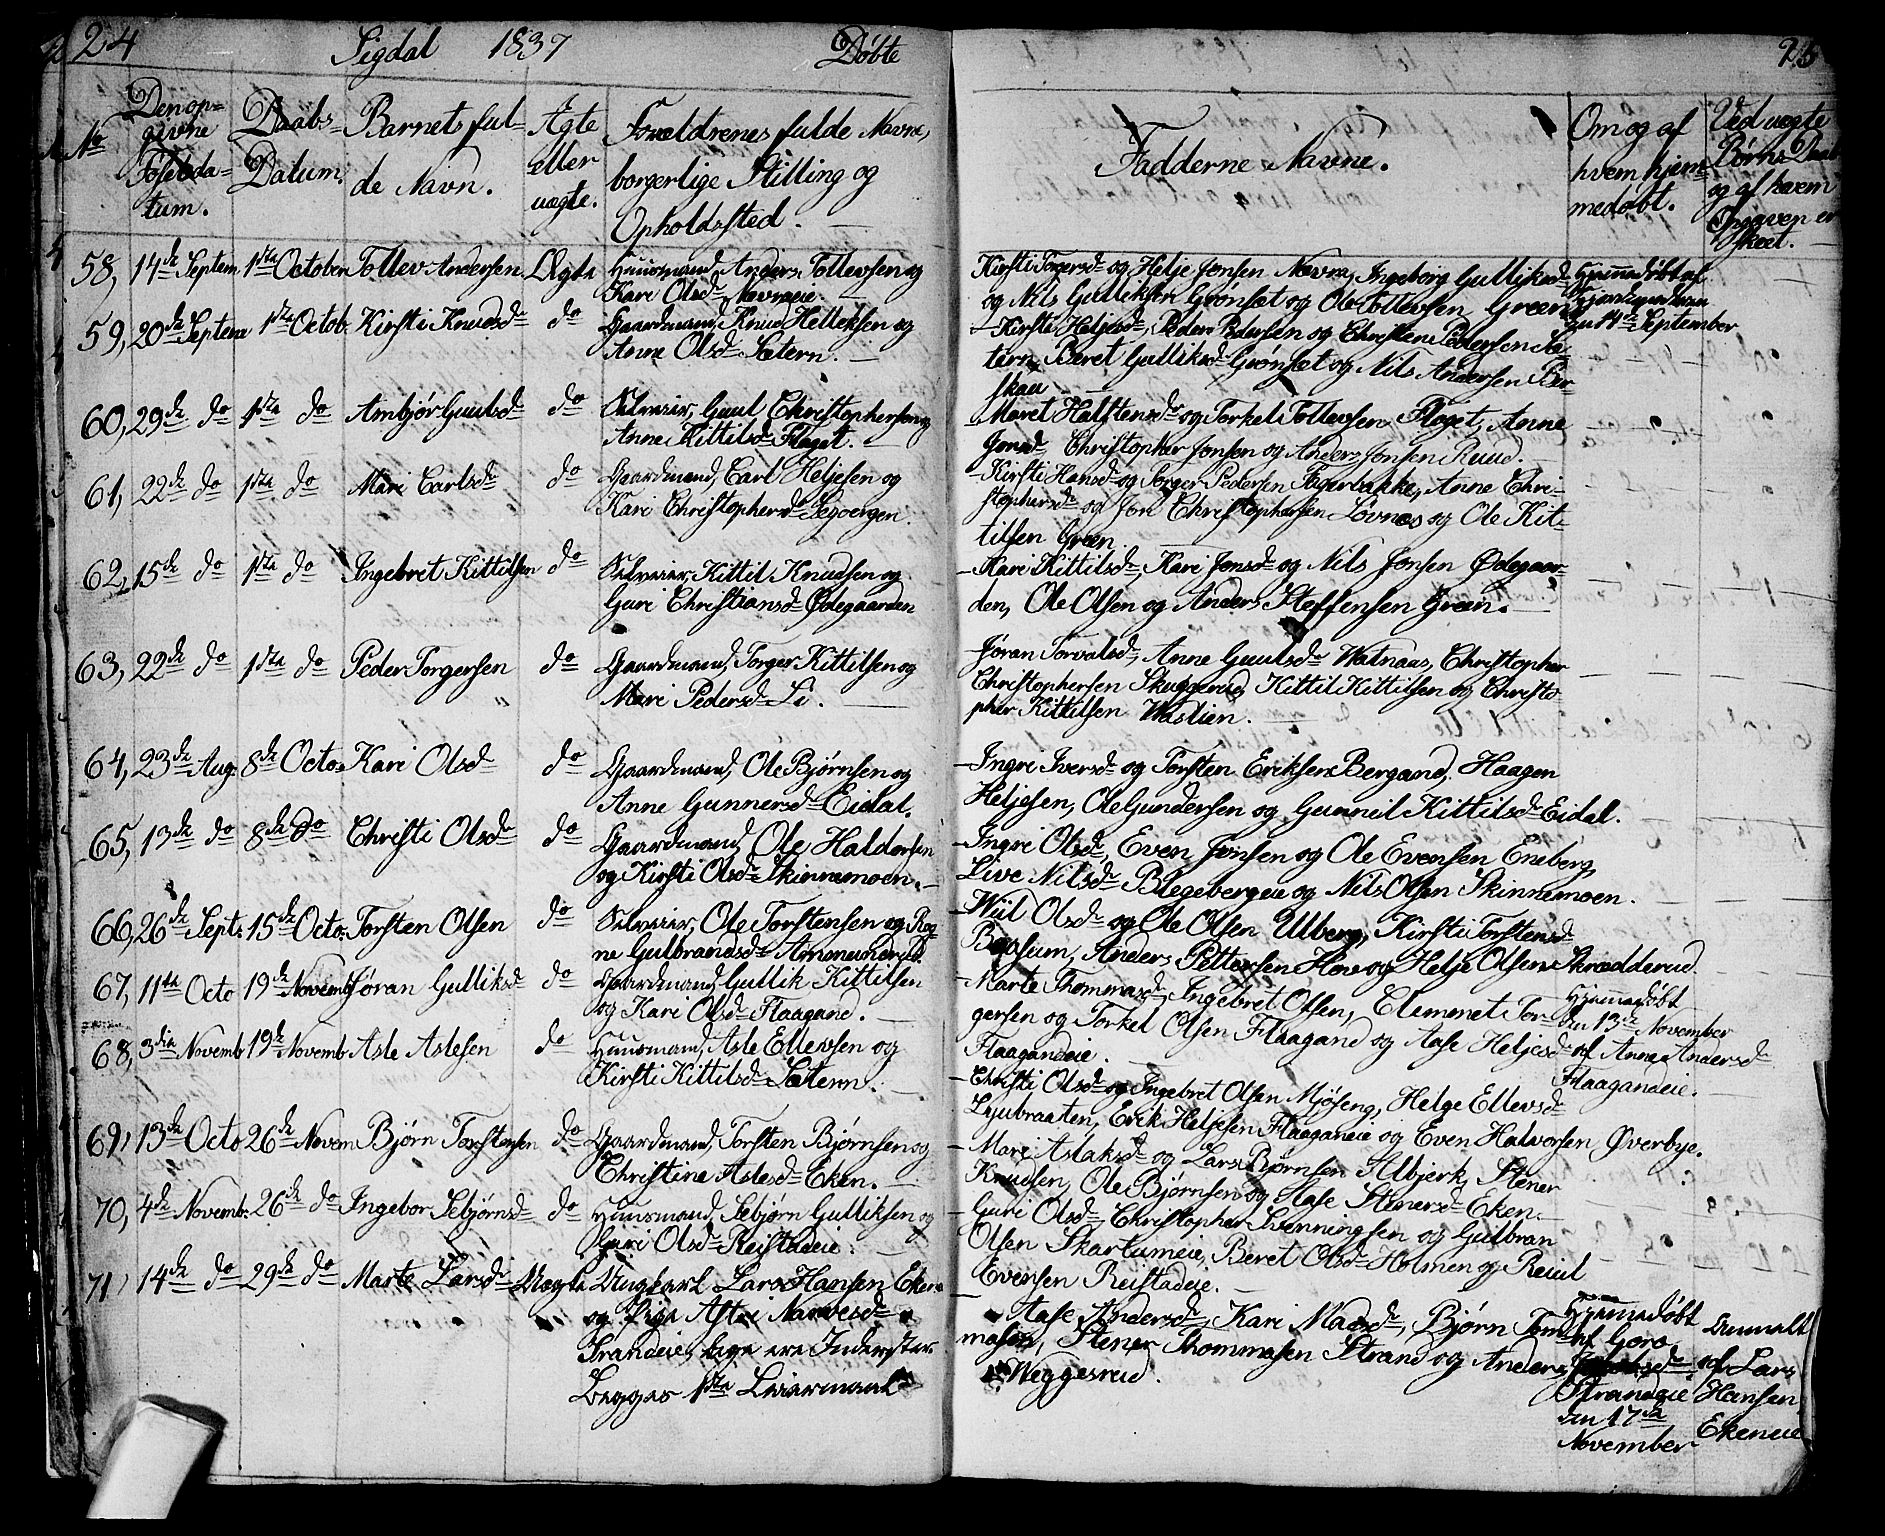 24 Sigdal 1837 Døbte
No
Den op-
givne
Fødselsda-
tum.
Daabs-
Datum.
Barnets ful-
de Navn.
Ægte
eller
uægte.
Forældrenes fulde Navne,
borgerlige Stilling og
Opholdssted.
58, 14de Septem 1ste October Tollev Andersen Ægte Huusmand, Anders Tollevsen og
Kari Olsdr Nævraeie.
59, 20de Septem 1ste Octob. Kirsti Knudsdr do Gaardmand, Knud Helleksen og
Anne Olsdr Sætern.
60, 29de do 1ste do Ambjør Guulsdr do Selveier, Guul Christophersen og
Anne Kittilsdr Flaget.
61, 22de do 1ste do Mari Carlsdr do Gaardmand, Carl Heljesen og
Kari Christophersdr
62, 15de do 1ste do Ingebret Kittilsen do Selveier, Kittil Knudsen og
Guri Christiansdr Ødegaarden
63, 22de do 1ste do Peder Torgersen do Gaardmand, Torger Kittilsen og
Mari Pedersdr Li.
64, 23de Aug. 8de Octo. Kari Olsdr do Gaardmand, Ole Bjørnsen og
Anne Gunnersdr Eidal.
65, 13de do 8de do Christi Olsdr do Gaardmand, Ole Haldorsen
og Kirsti Olsdr Skinnemoen.
66, 26de Sept. 15de Octo. Torsten Olsen do Selveier, Ole Torstensen og Rag-
ne Gulbrandsdr
67, 11te Octo 19de Novemb Jøran Gulliksdr do Gaardmand, Gullik Kittilsen
og Kari Olsdr Flaagand.
68, 3die Novemb 19de Novemb Asle Aslesen do Huusmand, Asle Ellevsen og
Kirsti Kittilsdr Sætern.
69, 13de Octo 26de Novem Bjørn Torstensen do Gaardmand, Torsten Bjørnsen og
Christine Aslesdr Eken.
70, 4de Novemb. 26de do Ingebor Sebjørnsdr do Huusmand, Sebjørn Gulliksen og
Guri Olsdr Reistadeie.
71, 14de do 29de do Marte Larsdr Uægte Ungkarl Lars Hansen Eken-
og Pige Astri Narvesdr
Strandeie, bege ere Inderster
Begges 1ste Leiermaal
25
Fadderne Navne.
Om og af
hvem hjem-
medøbt.
Ved uægte
Børns Daab
og af hvem
Opgaven er
skeet.
Kirsti Torgersdr og Helje Jonsen Nævra, Ingeborg Gulliksdr
og Nils Gulliksen Grønset og Ole Tollevsen Green
Hjemmedøbt af
Gjordemoderen
den 14de September
Kirsti Heljesdr, Peder Pedersen og Christen Pedersen Sæ-
tern, Beret Gulliksdr Grønset og Nils Andersen Ber
skau
Maret Halstensdr og Torkel Tollevsen Flaget, Anne
Jonsdr Christopher Jonsen og Anders Jonsen Ruud.
Kirsti Hansdr og Torger Pedersen Fagerbakke, Anne Chri-
stophersdr og Jon Christophersen Løvnes og Ole Kit-
tilsen Green.
Kari Kittilsdr, Kari Jonsdr og Nils Jonsen Ødegaar-
den, Ole Olsen og Anders Steffensen Green.
Jøran Torvalsdr, Anne Guulsdr Watnaas, Christopher
Christophersen Skuggerud, Kittil Kittilsen og Christo-
pher Kittilsen Waslien.
Ingri Iversdr og Torsten Eriksen Bergand, Haagen
Heljesen, Ole Gundersen og Gunnil Kittilsdr Eidal.
Ingri Olsdr, Even Jonsen og Ole Evensen Eneberg,
Live Nilsdr Blegebergeie og Nils Olsen Skinnemoen.
Wiil Olsdr og Ole Olsen Ulberg, Kirsti Torstensdr
Baalsum, Anders Pettersen Hov og Helje Olsen Skrædderud.
Marte Thommasdr, Ingebret Olsen, Elemmet Tor-
gersen og Torkel Olsen Flaagand og Aase Heljesdr
Flaagandeie.
Hjemmedøbt
den 13de November
af Anne Andersdr
Flaagandeie.
Christi Olsdr og Ingebret Olsen Mjøseng, Helge Ellevsdr
Ljubraaten, Erik Heljesen Flaaganeie og Even Halvorsen Øverbye.
Mari Aslaksdr og Lars Bjørnsen Albjerk, Stener
Knudsen, Ole Bjørnsen og Aase Stenersdr Eken.
Guri Olsdr, Christopher Svenningsen og Gulbran
Olsen Skartumeie, Beret Olsdr Holmen og Reiul
Evensen Reistadeie.
Aase Andersdr, Kari Madsdr, Bjørn Tom-
masen, Stener Thommesen Strand og Anders
Weggesrud.
Hjemmedøbt
af Goro
Strandeie
den 17de
November
Anmalt
af Lars
Hansen
Ekeneie